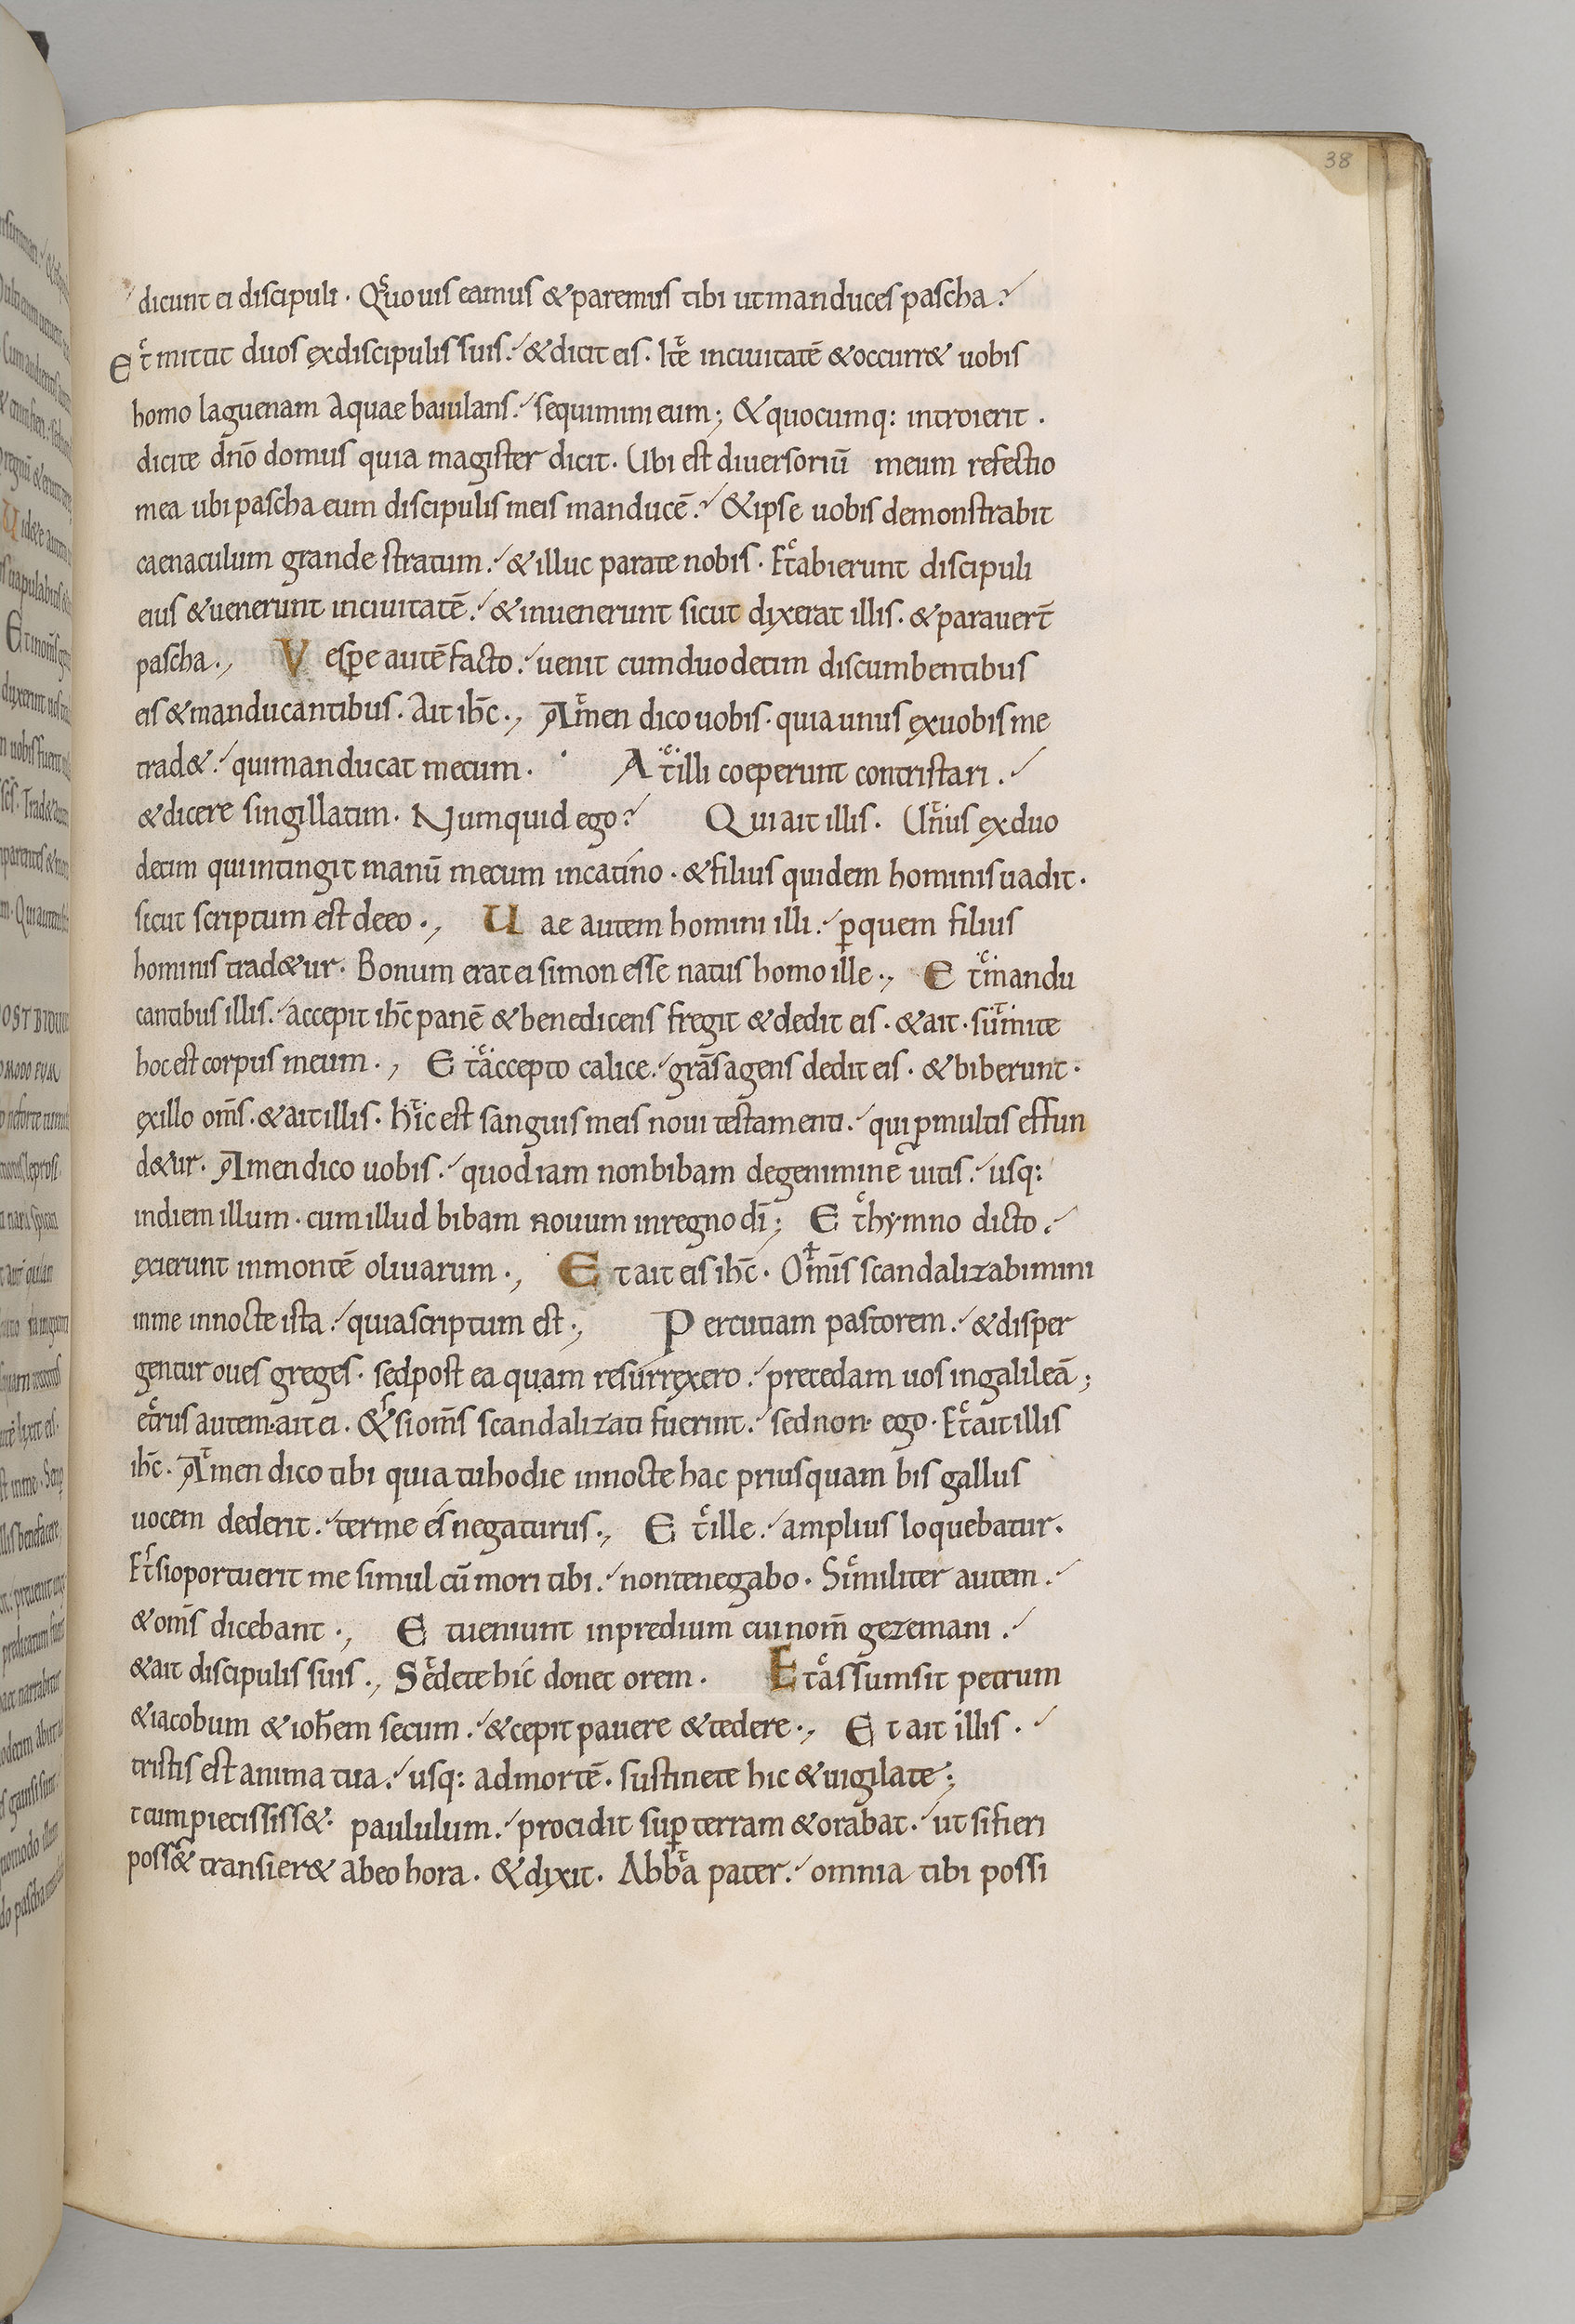 38
dicunt ei discipuli · Quo uis eamus & paremus tibi ut manduces pascha?
Et mittit duos ex discipulis suis. & dicit eis. Ite in ciuitatē & occurr& uobis
homo laguenam aquae baiulans. sequimini eum; & quocumq: introierit .
dicite dño domus quia magister dicit. Ubi est diuersoriū meum refectio
mea ubi pascha cum discipulis meis manducē? & ipse uobis demonstrabit
caenaculum grande stratum. & illuc parate nobis. Et abierunt discipuli
eius & uenerunt in ciuitatē. & inuenerunt sicut dixerat illis. & parauert̄
pascha., Vespe autē facto. uenit cum duodecim discumbentibus
eis & manducantibus. Ait ihc̄., Amen dico uobis. quia unus ex uobis me
trad&. qui manducat mecum. At illi coeperunt contristari.
& dicere singillatim. Numquid ego? Qui ait illis. Unus ex duo
decim qui intingit manū mecum in catino. & filius quidem hominis uadit.
sicut scriptum est de eo., Uae autem homini illi. p̱ quem filius
hominis trad&ur. Bonum erat ei si mon esse natus homo ille., Et mandu
cantibus illis. accepit ihc̄ panē & benedicens fregit & dedit eis. & ait. sumite
hoc est corpus meum., Et accepto calice. grās agens dedit eis. & biberunt.
ex illo om̄s. & ait illis. hic est sanguis meis noui testamenti. qui p multis effun
d&ur. Amen dico uobis. quod iam non bibam de genimine uitis. usq:
in diem illum. cum illud bibam nouum in regno dī; Et hymno dicto.
exierunt in montē oliuarum., Et ait eis ihc̄. Om̄is scandalizabimini
in me in nocte ista. quia scriptum est., Percutiam pastorem. & disper
gentur oues greges. sed post ea quam resurrexero. precedam uos in galileā;
etrus autem. ait ei. & si om̄s scandalizati fuerint. sed non ego. Et ait illis
ihc̄. Amen dico tibi quia tu hodie in nocte hac priusquam bis gallus
uocem dederit. ter me és negaturus., Et ille. amplius loquebatur.
Et si oportuerit me simul cū mori tibi. non te negabo. Similiter autem.
& om̄s dicebant., Et ueniunt in predium cui nom̄ gezemani.
& ait discipulis suis., Sedete hic donec orem. Et assumsit petrum
& iacobum & ioh̄em secum. & cepit pauere & tedere., Et ait illis.
tristis est anima tua. usq: ad mortē. sustinete hic & uigilate;
t cum piecississ&. paululum. procidit sup̱ terram & orabat. ut si fieri
poss& transier& ab eo hora. & dixit. Abba pater. omnia tibi possi